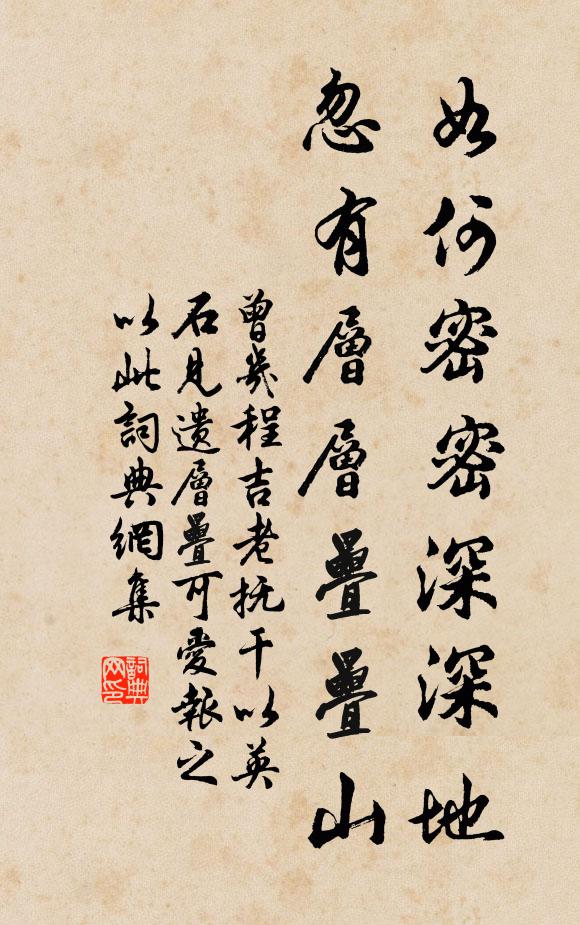 如何密密深深地
忽有層層疊疊山
曾幾程吉老抚干以英
石見遗層疊可愛報之
以此詞典網集
詞典
网印